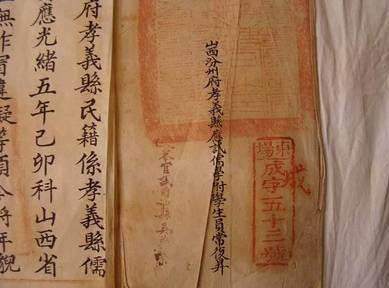 東場
成字五十三號
山西汾州府孝義縣應試儒學附學生員常復昇
府孝義縣民籍係孝義縣儒
應光緒五年己卯科山西省
無詐冒違礙等項今將年貌